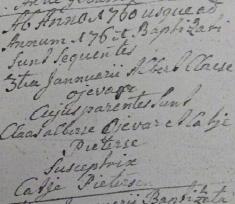 Ab Anno 1760 usque ad
Annum 176 Baptizati
sunt sequentes
3tia Jannuerii Albert Claese
ojevaer
cujus parentes sunt
Claas alberse Ojevar et
Pieterse
Susceptrix
Pieterse
Jannuerii Baptizata